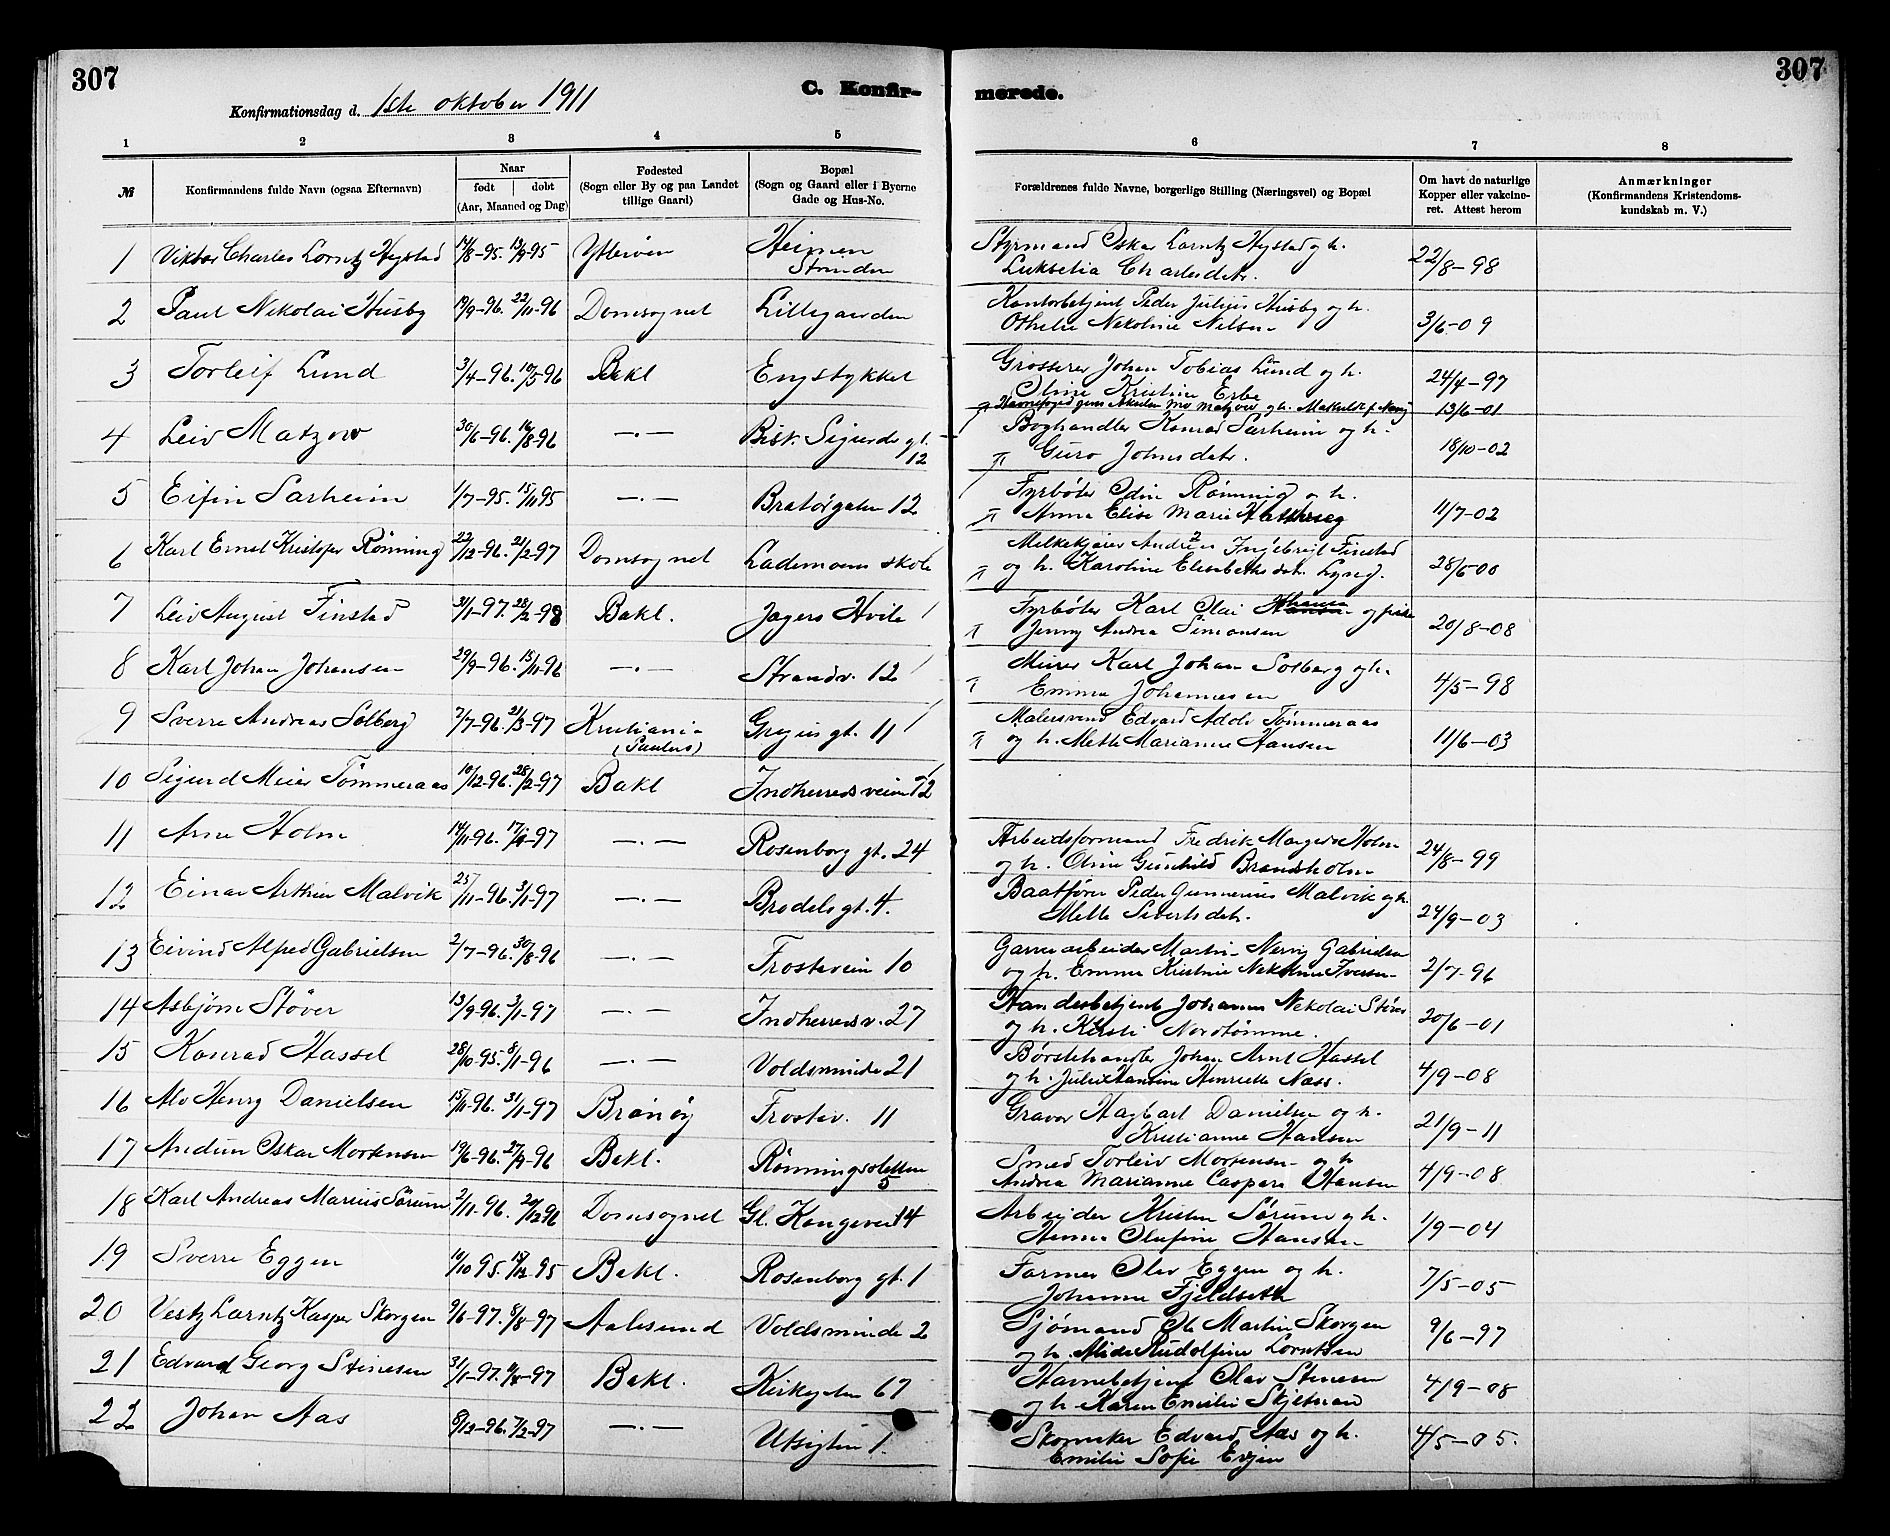 307
Konfirmationsdag d. 1ste oktober 1911
C. Konfir-
merede.
307
1 2 3 4 5 6 7 8
№
Konfirmandens fulde Navn (ogsaa Efternavn)
Naar
født | døbt
(Aar, Maaned og Dag)
Fødested
(Sogn eller By og paa Landet
tillige Gaard)
Bopæl
(Sogn og Gaard eller i Byerne
Gade og Hus-No.
Forældrenes fulde Navne, borgerlige Stilling (Næringsvei) og Bopæl
Om havt de naturlige
Kopper eller vakcine-
ret. Attest herom
Anmærkninger
(Konfirmandens Kristendoms-
kundskab m. V.)
1 Viktor Charles Lorntz Hegstad 14/8-95. 13/9-95 Ytterøen Heimen
Strinden
Styrmand Oskar Lorntz Hegstad og h.
Charlesdatr. 22/8-98
2 Paul Nikolai Husby 19/9-96. 22/11-96 Domsognet Lillegaarden
Kontorbetjent Peder Julius Husby og h.
Othelie Nekoline Nilsen 3/6-09
3 Torleif Lund 3/4-96. 10/5-96 Bakl Engstykket
Grosserer Johan Tobias Lund og h.
Oline Kristine 24/4-97
4 Leiv Matzow 30/6-96. 16/8-96 -·- Bisk. Sigurds gt.
12
Havnefoged og h. 13/6-01
Boghandler Konrad Sarheim og h.
Guro Johnsdatr. 18/10-02
5 Eifin Sarheim 1/7-95. 15/11 95 -·- Bratørgaten 12
Fyrbøter Odin Rønning og h.
Anna Elise Marie 11/7-02
6 Karl Ernst Kristofer Rønning 22/12-96. 21/2-97 Domsognet Lademoens skole
Melkekjører Andreas Ingebrigt Finstad
og h. Karoline Elisabeth 28/6-00
7 Leiv August Finstad 31/1-97. 28/2-98 Bakl. Jagers Hvile
Fyrbøter Karl Olai Johansen og pike
Jenny Andrea Simonsen 20/8-08
8 Karl Johan Johansen 29/9-96. 15/11-96 -·- Strandv. 12
Murer Karl Johan Solberg og h.
Emma Johannesen 4/5-98
9 Sverre Andreas Solberg 7/7-96. 21/3-97 Kristiania
(Paulus)
Gregusgt. 11
Malersvend Edvard Adolv Tømmeraas
og h. Mette Marianne Hansen 11/6-03
10 Sigurd Meier Tømmeraas 10/12-96. 28/2-97 Bakl Indherredsveien 72
11 Arne Holm 14/11-96. 17/1-97 -·- Rosenborg gt. 24
Arbeidsformand Fredrik Holm
og h. Oline Gunhild Brandsholm 24/8-99
12 Einar Arthur Malvik 25/11-96. 3/1-97 -·- Brodels gt. 4.
Baatfører Peder Gunnerius Malvik og h.
Mette Sivertsdatr. 24/9-03
13 Eivind Alfred Gabrielsen 2/7-96. 30/8-96 -·- Frosteveien 10
Garverarbeider Martin Gabrielsen
og h. Emma Kristine Nekoline Iversen 2/7-96
14 Asbjørn Støver 13/9-96. 3/1-97 -·- Indherredsv. 27
Handesbetjent Johannes Nekolai Støver
og h. Kirsti Nordtømme. 20/6-01
15 Konrad Hassel 28/10-95. 8/1-96 -·- Voldsminde 21
Børstehandler Johan Arnt Hassel
og h. Julie Hansine Henriette Næss. 4/9-08
16 Alv Henry Danielsen 15/11-96. 31/1-97 Brønøy Frostev. 11
Gravør Hagbart Danielsen og h.
Kristianne Hansen 21/9-11
17 Audun Oskar Mortensen 19/6-96. 27/9-96 Bakl. Rønningsletten
5
Smed Torleiv Mortensen og h
Andrea Marianne Caspara Hansen 4/9-08
18 Karl Andreas Marius Sørum 2/11-96. 20/12 96 Domsognet Gl. Kongevei 14
Arbeider Kristen Sørum og h.
Hanna Olufine Hansen 1/9-04
19 Sverre Eggen 10/10 95. 15/12-95 Bakl. Rosenborg gt. 1
Farmer Olav Eggen og h.
Johanna Fjeldseth 7/5-05
20 Lorntz Kasper Skorgen 9/6-97. 8/8-97 Aalesund Voldsminde 2
Sjømand Ole Martin Skorgen
og h. Rudolfine Lorntsen 9/6-97
21 Edvard Georg Stenesen 31/1-97. 11/4-97 Bakl. Kirkegaten 67
Havnebetjent Olav Stenesen
og h. Karen Emilie Skjetnan 4/9-08
22 Johan Aas 8/12-96. 7/2-97 -·- Utsigten 1.
Skomaker Edvard Aas og h.
Emilie Sofie Evjen 4/5-05.